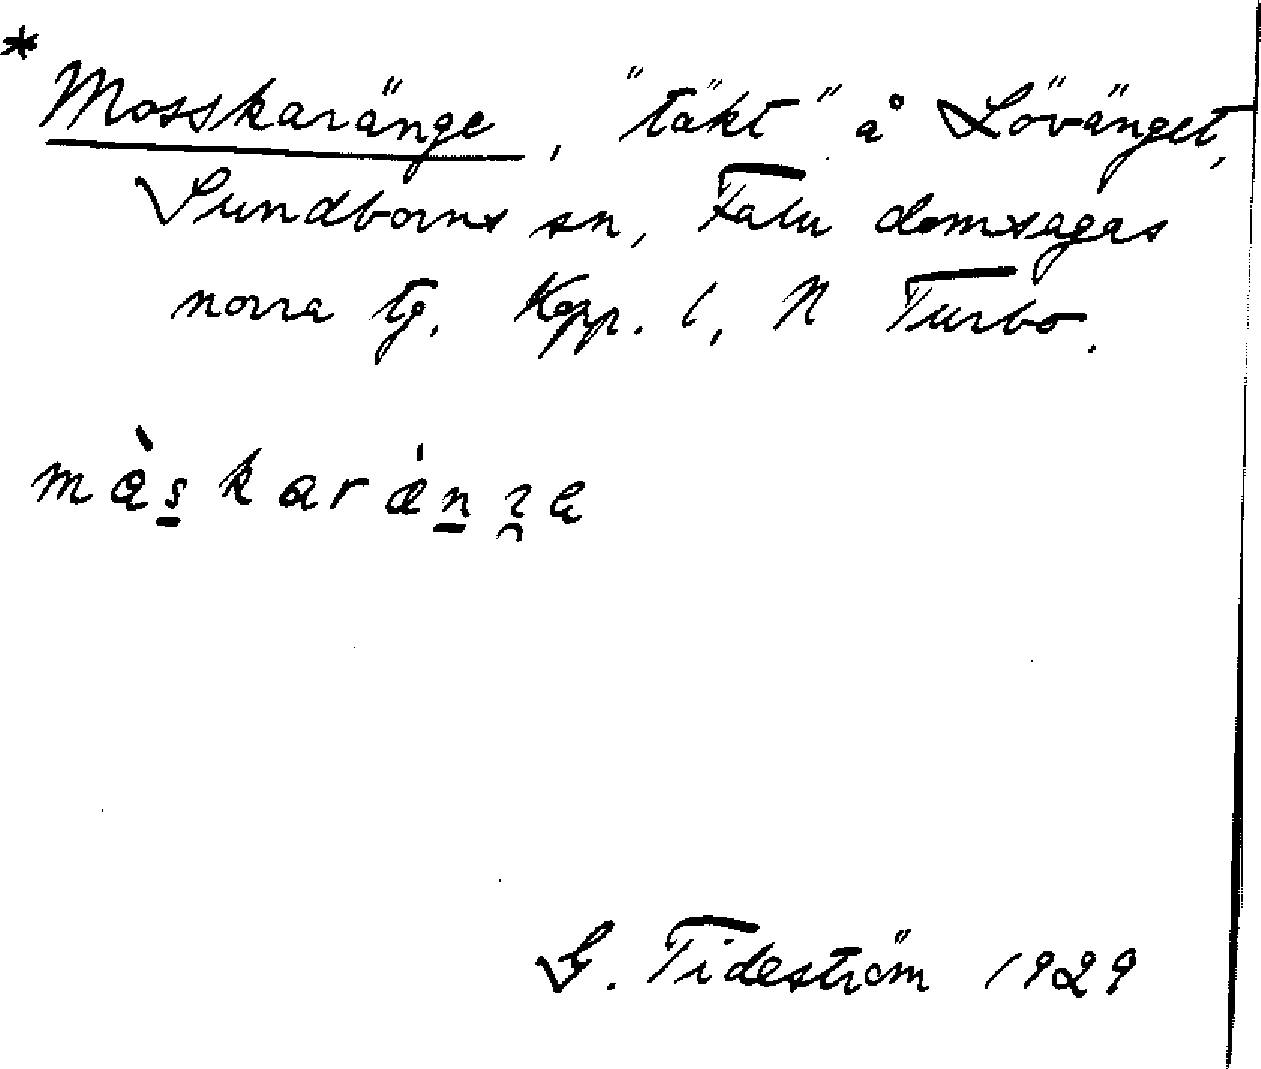 * Mosskaränge, "täkt" å Lövänget,
Sundborns sn, Falu domsagas
norra tg. Kopp. l, N Turbo.
G. Tideström 1929